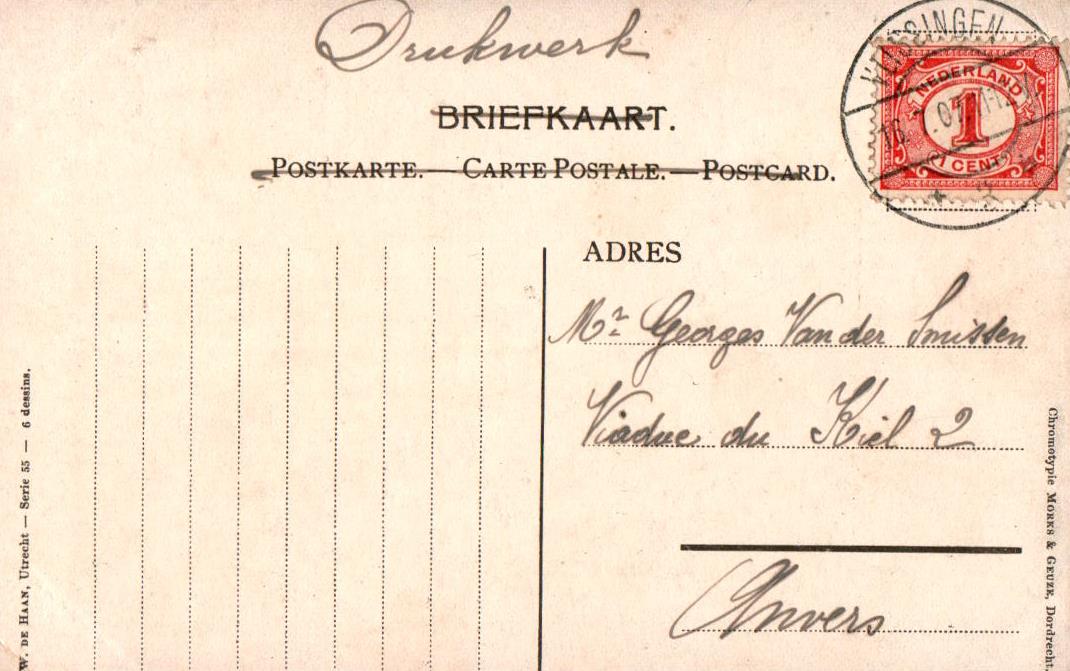 Drukwerk
BRIEFKAART.
POSTKARTE. — CARTE POSTALE. — POSTCARD.
VLISSINGEN
NEDERLAND
1
1 CENT
ADRES
Mr Georges Van der Smissen
Viaduc du Kiel 2
Anvers
W. DE HAAN, Utrecht — Serie 55 — 6 dessins.
Chromotypie MORKS & GEUZE, Dordrecht.